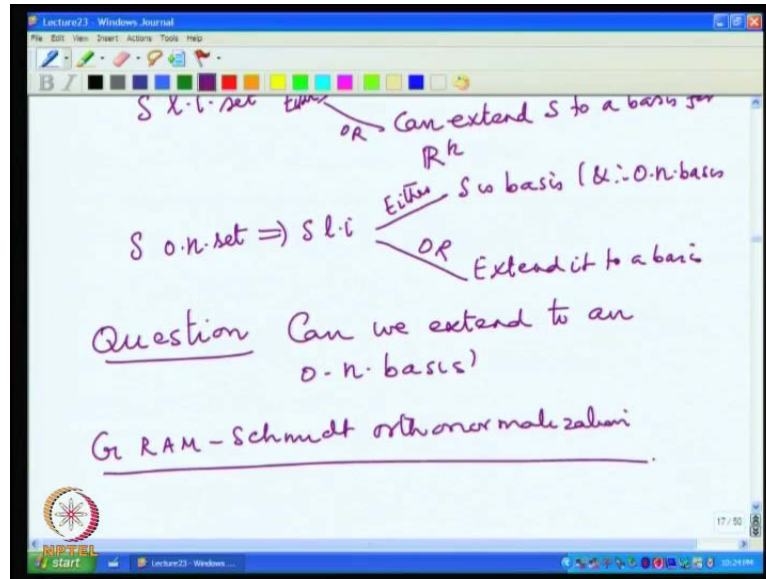 Lecture23 - Windows Journal
File Edit View Insert Actions Tools Help
B I
S l.i. set Either
OR Can extend S to a basis for
R^k
Either S is basis (& ∴ O.n. basis
S o.n. set ⇒ S l.i
OR Extend it to a basis
Question Can we extend to an
o.n. basis)
GRAM-Schmidt orthonormalization
17 / 50
NPTEL
start Lecture23 - Windows ... 10:29 PM